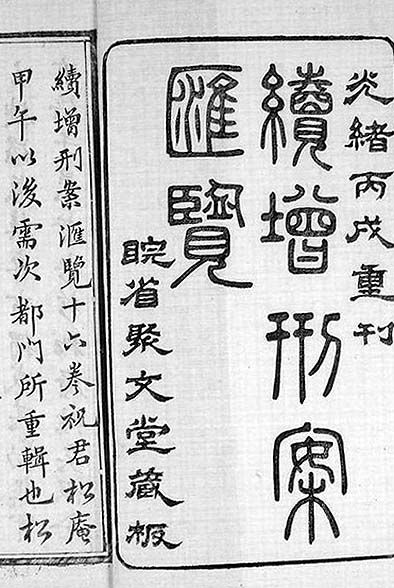 光緒丙戌重刊
續增刑案
匯覽
睆省聚文堂藏板
續增刑案滙覽十六卷祝君松庵
甲午以後需次都門所重輯也松